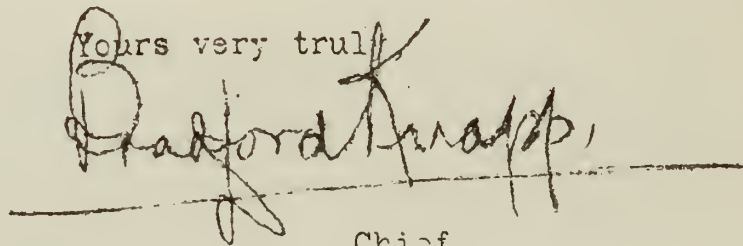 Yours very truly
Bradford Knapp,
Chief